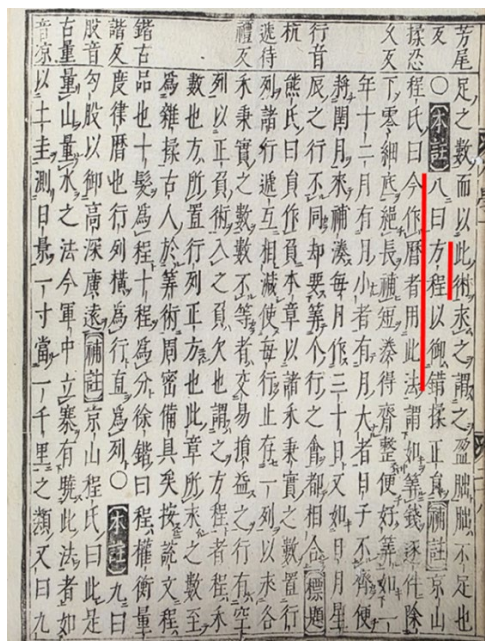 芳尾
反
揉忍
又反
行音
杭
遞待
禮反
鍇古
諧反
股音
古量
音凉
足之數而以此術求之謂之盈朒朒不足也
○本註八曰方程以御錯揉正負補註京山
程氏曰今作曆者用此法謂如筭錢逐件除
下零細底絕長補短湊得齊整便好筭如一
年十二月有月小者有月大者日子不齊便
將閏月來補湊每月作三十日又如日月星
辰之行不同却要筭个行之會都相合標題
熊氏曰負作負本章以諸禾秉實之數置行
列諸行遞互相減使每行止存一列以求各
禾秉實之數數不等者交易損益之行有空
列以正負術入之負欠也謂之方程者程禾
數也方所置行列正方也此章所求之數至
為雜揉古人於筭術周密備具矣按說文程
品也十髮為程十程為分徐鍇曰程權衡量
度律曆也行列橫為行直為列○本註九曰
勾股以御高深廣遠補註京山程氏曰此是
量山量水之法今軍中立寨有號此法者如
以土圭測日景一寸當一千里之類又曰九